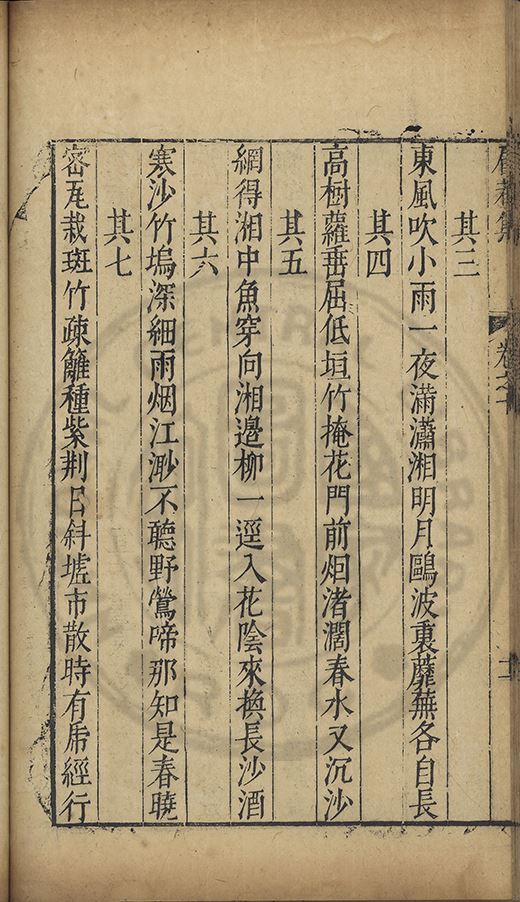 卷之
其三
東風吹小雨一夜滿瀟湘明月鷗波裏蘼蕪各自長
其四
高樹蘿垂屋低垣竹掩花門前烟渚濶春水又沉沙
其五
網得湘中魚穿向湘邉柳一逕入花陰來換長沙酒
其六
寒沙竹塢深細雨烟江渺不聽野鶯啼那知是春曉
其七
宻瓦栽斑竹疎籬種紫荆日斜墟市散時有虎經行